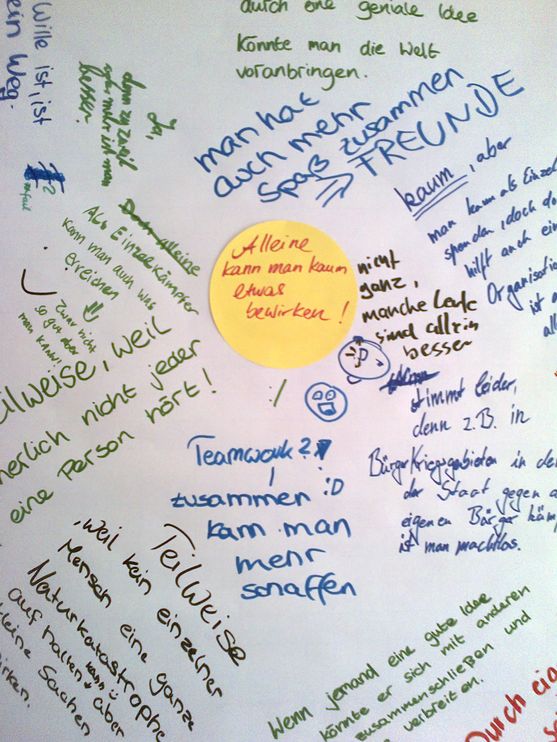 durch eine geniale Idee
könnte man die Welt
voranbringen.
Wille ist, ist
ein Weg.
Ja,
denn zu zweit
ist man
besser.
man hat
auch mehr
Spaß zusammen
⇒ FREUNDE
kaum, aber
man kann als Einzel
spenden, doch do
hilft auch ein
Organisatio
ist a
all
Als Einzelkämpfer
kann man auch was
erreichen
Zwar nicht
so gut aber
man kann!
Alleine
kann man kaum
etwas
bewirken!
nicht
ganz,
manche Leute
sind allein
besser
:/
:D
stimmt leider,
denn z.B. in
Bürgerkriegsgebieten in den
der Staat gegen
eigenen Bürger käm
ist man machtlos.
ilweise, weil
herlich nicht jeder
eine Person hört!
Teamwork?
zusammen :D
kann man
mehr
schaffen
Teilweise
, weil kein einzelner
Mensch eine ganze
Naturkatastrophe
aufhalten kann aber
kleine Sachen
irken.
Wenn jemand eine gute Idee
könnte er sich mit anderen
zusammenschließen und
verbreiten.
Durch ei